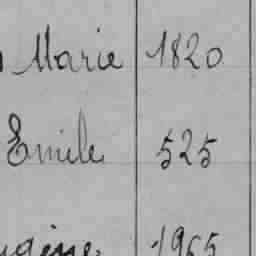 Marie 1820
Emile 525
1965